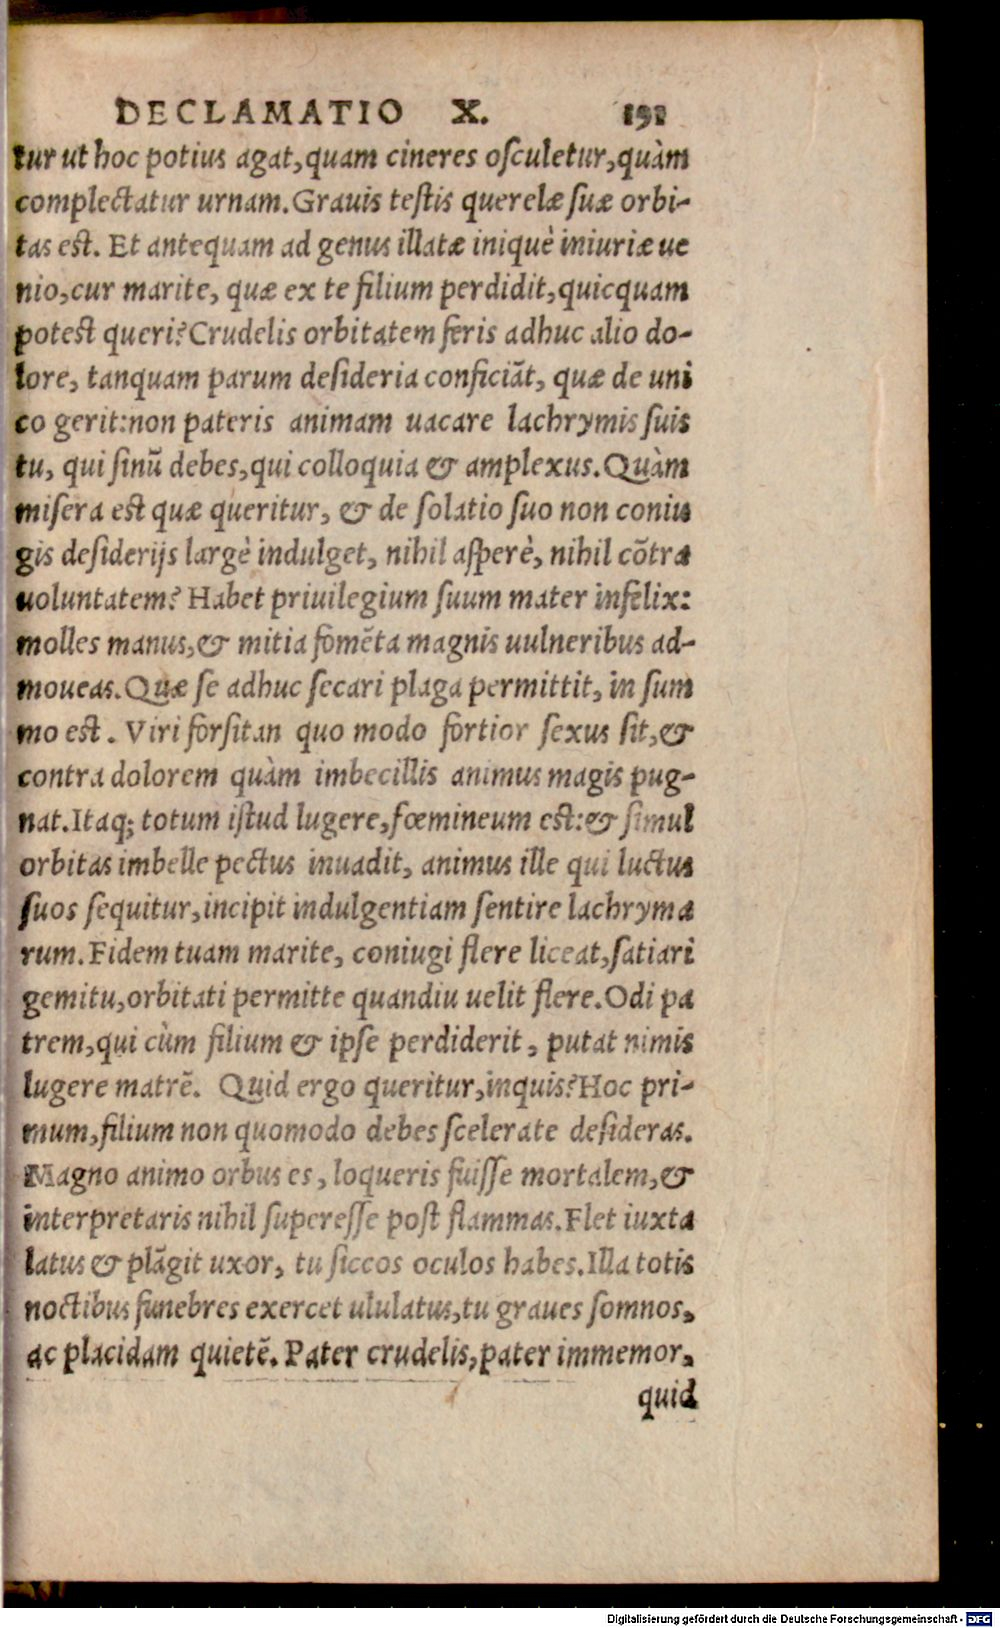 DECLAMATIO X. 191
tur ut hoc potius agat, quam cineres osculetur, quàm
complectatur urnam. Grauis testis querelæ suæ orbi-
tas est. Et antequam ad genus illatæ iniquè iniuriæ ue
nio, cur marite, quæ ex te filium perdidit, quicquam
potest queri? Crudelis orbitatem feris adhuc alio do-
lore, tanquam parum desideria conficiāt, quæ de uni
co gerit: non pateris animam uacare lachrymis suis
tu, qui sinū debes, qui colloquia & amplexus. Quàm
misera est quæ queritur, & de solatio suo non coniu
gis desiderijs largè indulget, nihil asperè, nihil cōtra
uoluntatem? Habet priuilegium suum mater infelix:
molles manus, & mitia fomēta magnis uulneribus ad-
moueas. Quæ se adhuc secari plaga permittit, in sum
mo est. Viri forsitan quo modo fortior sexus sit, &
contra dolorem quàm imbecillis animus magis pug-
nat. Itaq; totum istud lugere, fœmineum est: & simul
orbitas imbelle pectus inuadit, animus ille qui luctus
suos sequitur, incipit indulgentiam sentire lachryma
rum. Fidem tuam marite, coniugi flere liceat, satiari
gemitu, orbitati permitte quandiu uelit flere. Odi pa
trem, qui cùm filium & ipse perdiderit, putat nimis
lugere matrē. Quid ergo queritur, inquis? Hoc pri-
mum, filium non quomodo debes scelerate desideras.
Magno animo orbus es, loqueris fuisse mortalem, &
interpretaris nihil superesse post flammas. Flet iuxta
latus & plāgit uxor, tu siccos oculos habes. Illa totis
noctibus funebres exercet ululatus, tu graues somnos,
ac placidam quietē. Pater crudelis, pater immemor,
quid
Digitalisierung gefördert durch die Deutsche Forschungsgemeinschaft - DFG